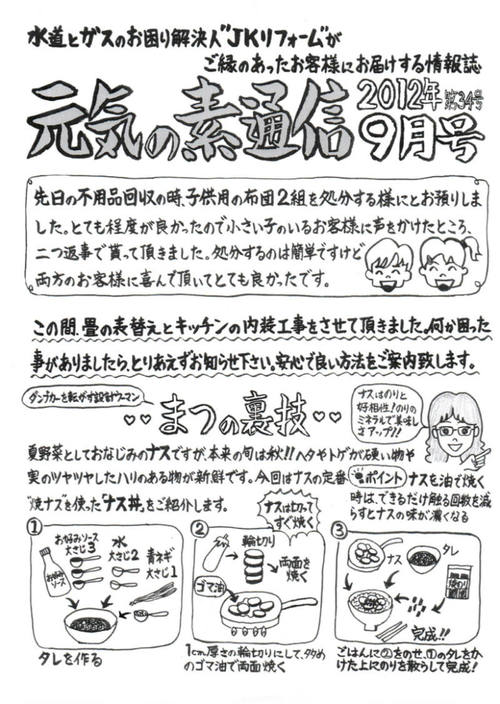 水道とガスのお困り解決人"JKリフォーム"が
ご縁のあったお客様にお届けする情報誌
元気の素通信 2012年 第34号
9月号
先日の不用品回収の時、子供用の布団2組を処分する様にとお預りしま
した。とても程度が良かったので小さい子のいるお客様に声をかけたところ、
二つ返事で貰って頂きました。処分するのは簡単ですけど
両方のお客様に喜んで頂いてとても良かったです。
この間、畳の表替えとキッチンの内装工事をさせて頂きました。何か困った
事がありましたら、とりあえずお知らせ下さい。安心で良い方法をご案内致します。
ダンプカーを転がす設計ウーマン
まつの裏技
ナスはのりと
好相性!のりの
ミネラルで美味し
さアップ!!
夏野菜としておなじみのナスですが、本来の旬は秋!!ヘタやトゲが硬い物や
実のツヤツヤしたハリのある物が新鮮です。今回はナスの定番
"焼ナス"を使った"ナス丼"をご紹介します。
ポイント ナスを油で焼く
時は、できるだけ触る回数を減
らすとナスの味が濃くなる
①
お好みソース
大さじ3
水
大さじ2
青ネギ
大さじ1
お好みソース
タレを作る
②
ナスは切って
すぐ焼く
輪切り
両面を
焼く
ゴマ油
1cm厚さの輪切りにして、多め
のゴマ油で両面焼く
③
ナス
タレ
味のり
完成!!
ごはんに②をのせ、①のタレをか
けた上にのりを散らして完成!